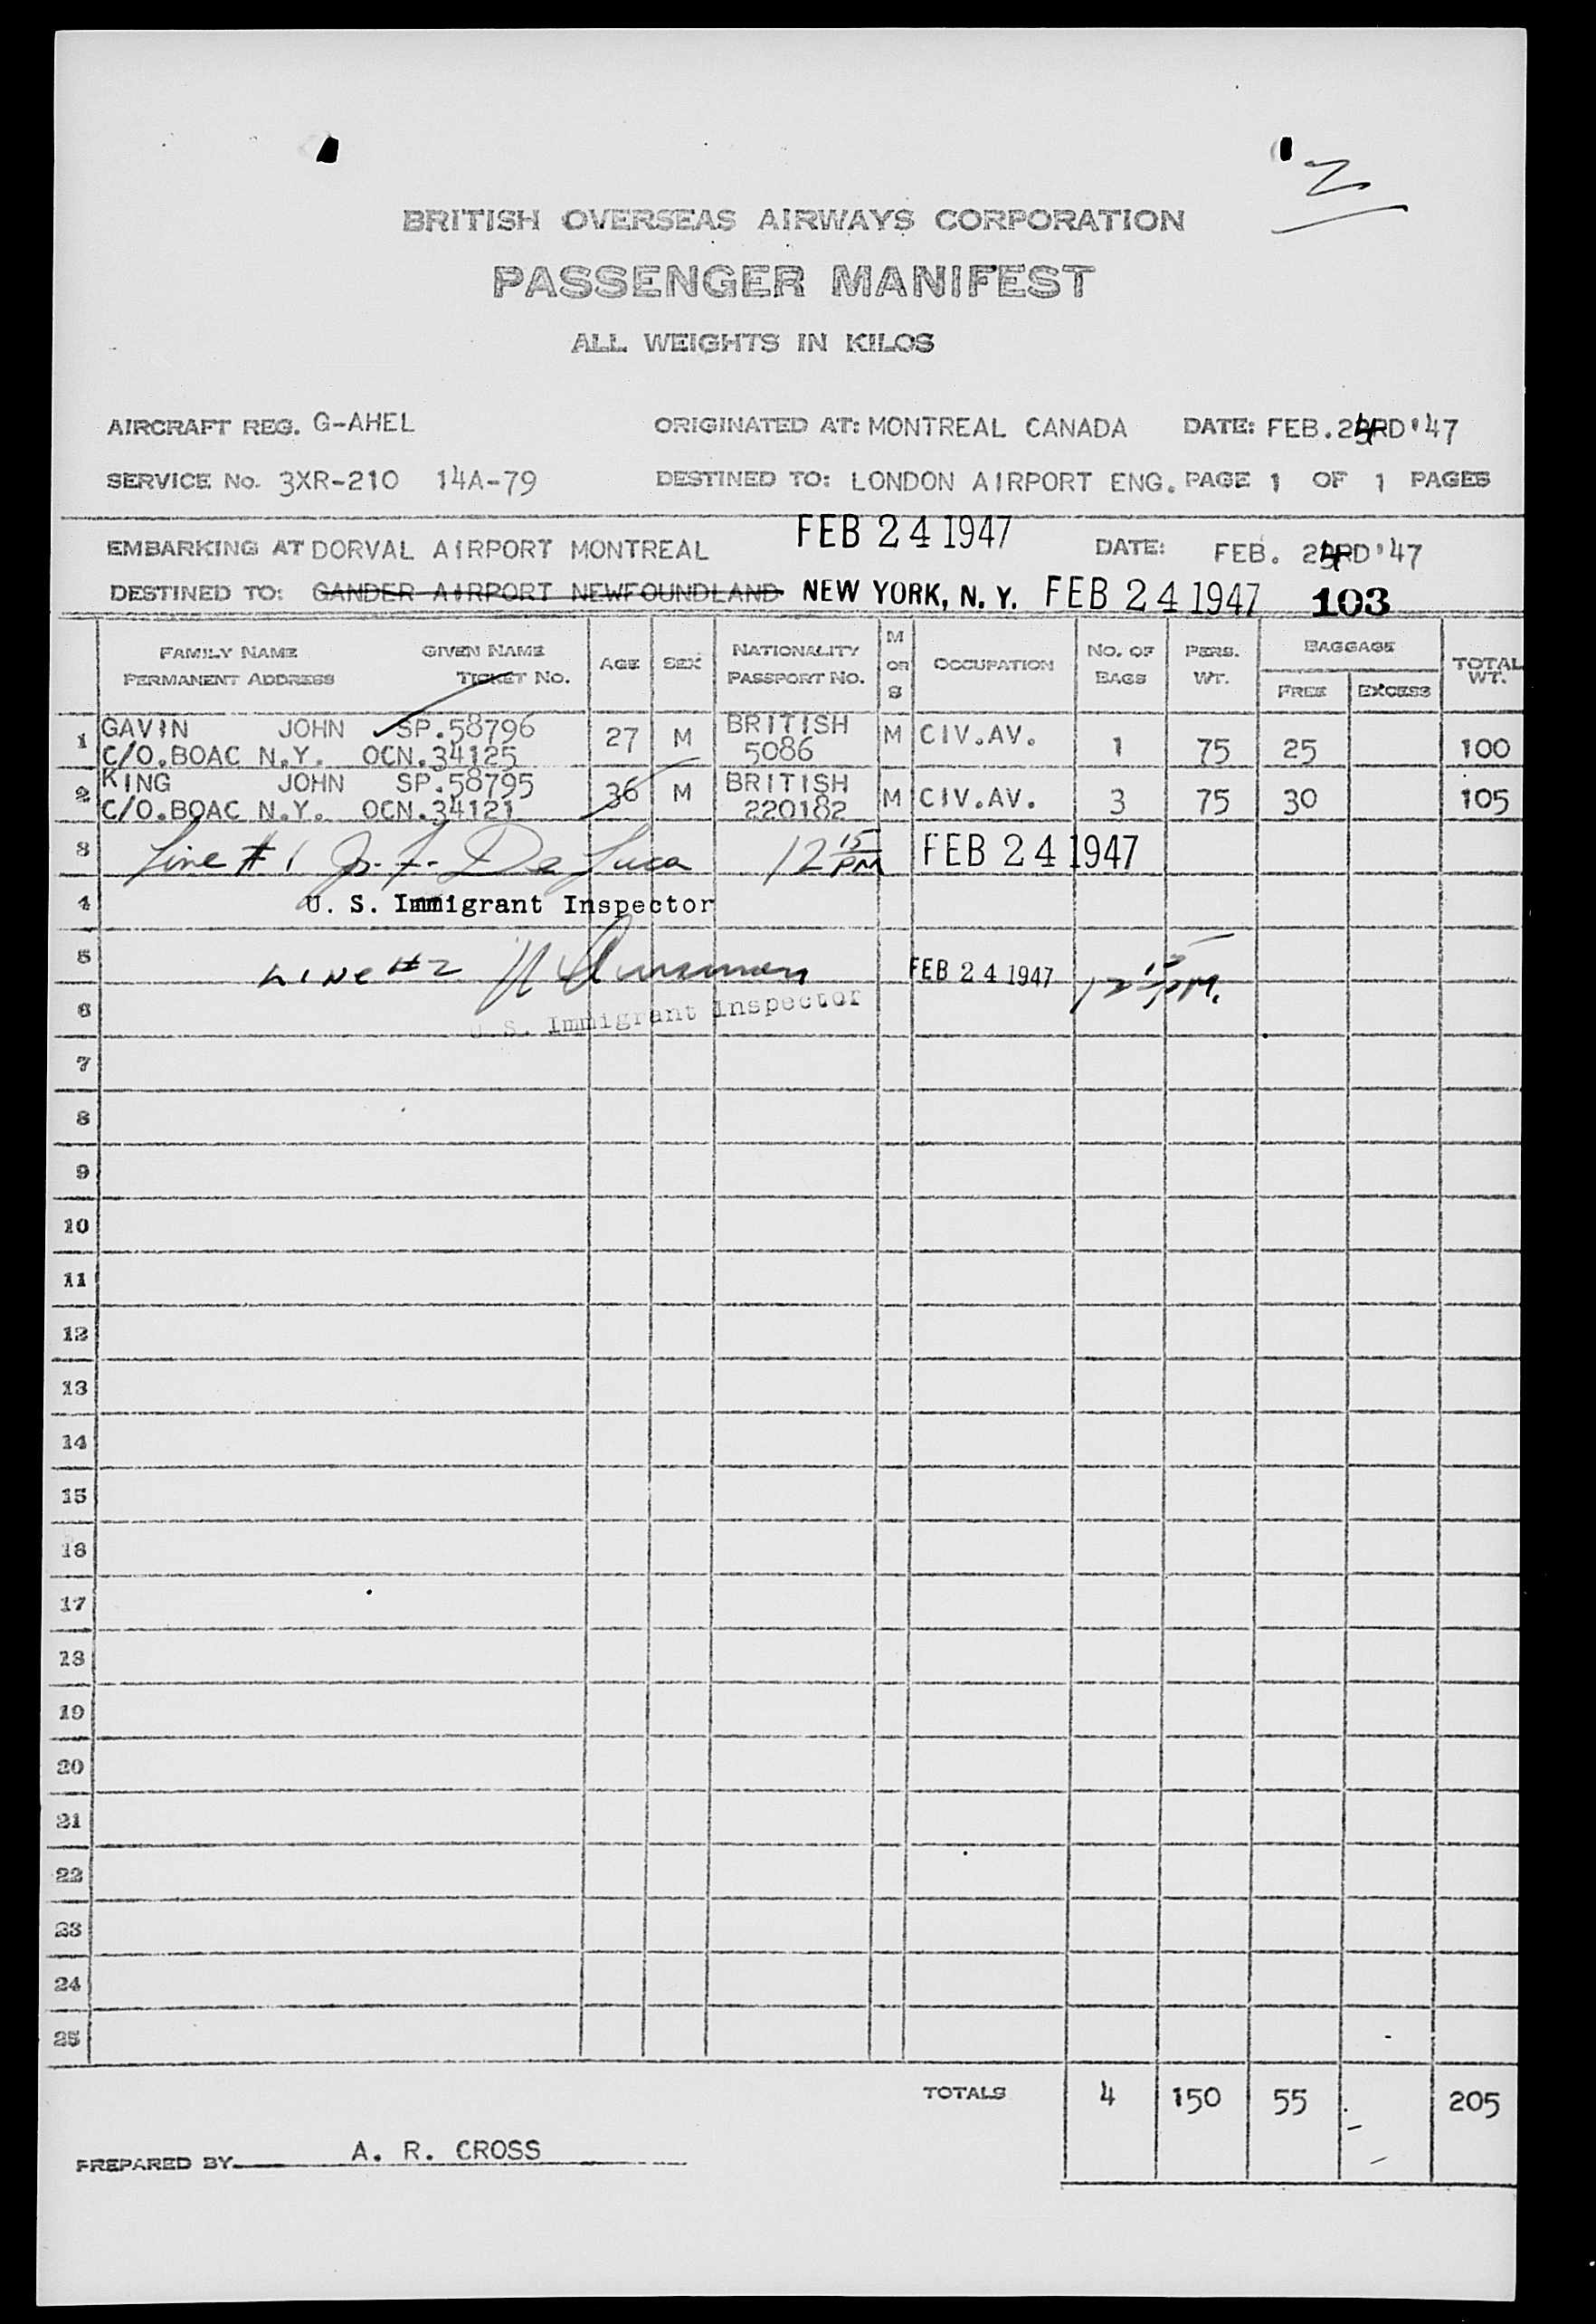 2
BRITISH OVERSEAS AIRWAYS CORPORATION
PASSENGER MANIFEST
ALL WEIGHTS IN KILOS
AIRCRAFT REG. G-AHEL ORIGINATED AT: MONTREAL CANADA DATE: FEB. 24RD'47
SERVICE No. 3XR-210 14A-79 DESTINED TO: LONDON AIRPORT ENG. PAGE 1 OF 1 PAGES
FEB 24 1947
EMBARKING AT DORVAL AIRPORT MONTREAL DATE: FEB. 24RD'47
DESTINED TO: GANDER AIRPORT NEWFOUNDLAND NEW YORK, N. Y. FEB 24 1947 103
FAMILY NAME GIVEN NAME AGE SEX NATIONALITY M OR S OCCUPATION NO. OF BAGS PERS. WT. BAGGAGE TOTAL WT.
PERMANENT ADDRESS TICKET NO. PASSPORT NO. FREE EXCESS
1 GAVIN JOHN SP.58796 27 M BRITISH M CIV.AV. 1 75 25 100
C/O.BOAC N.Y. OCN.34125 5086
2 KING JOHN SP.58795 36 M BRITISH M CIV.AV. 3 75 30 105
C/O.BOAC N.Y. OCN.34121 220182
3 Line # 1 J. F. De Luca 12 15 PM FEB 24 1947
4 U. S. Immigrant Inspector
5 Line #2 FEB 24 1947 12 15 PM.
6 U. S. Immigrant Inspector
7
8
9
10
11
12
13
14
15
16
17
18
19
20
21
22
23
24
25
TOTALS 4 150 55 205
PREPARED BY A. R. CROSS